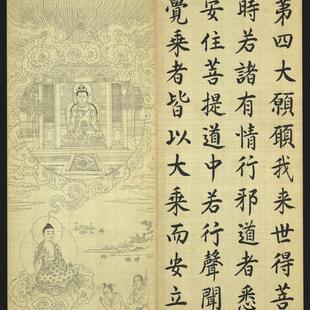 第四大願願我來世得菩
時若諸有情行邪道者悉
安住菩提道中若行聲聞
覺乘者皆以大乘而安立